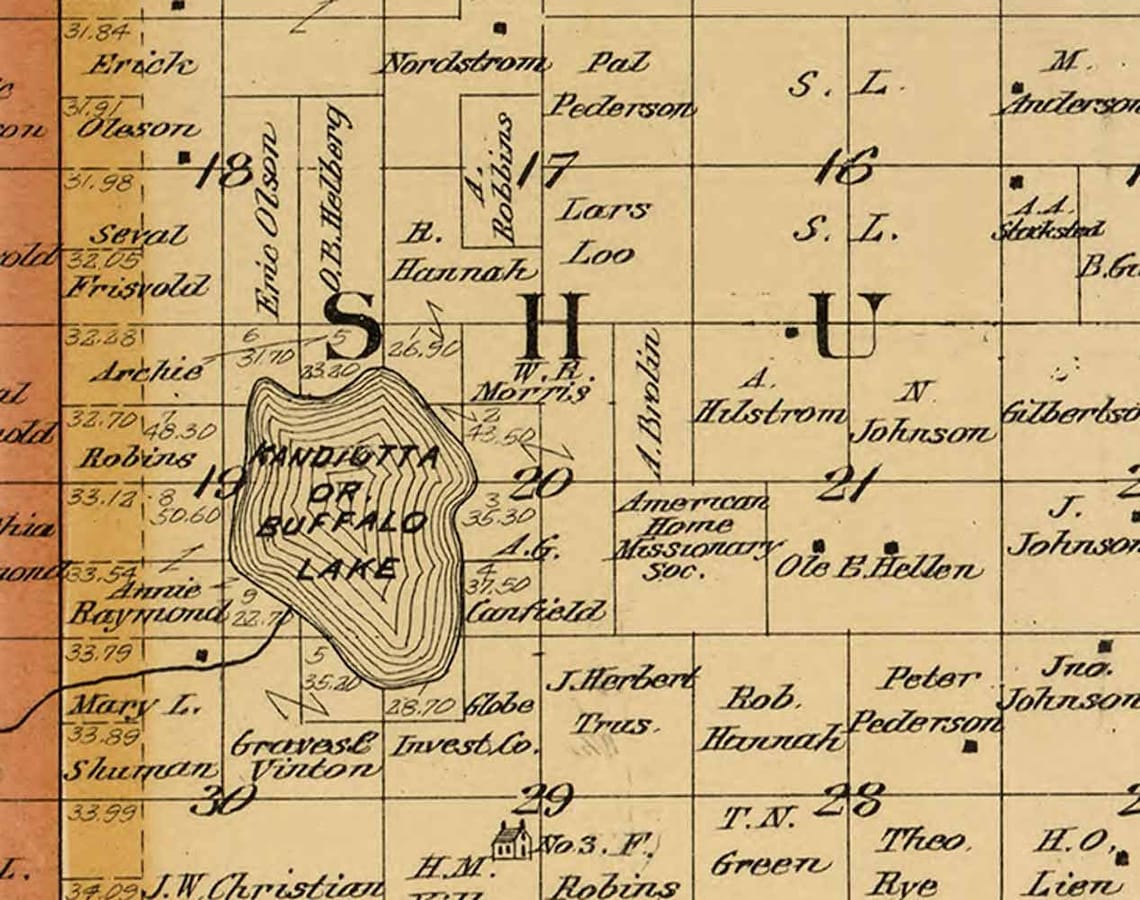 31.84
Erick
31.91
Oleson
Nordstrom
Pal
Pederson
S. L.
M.
Anderson
18
17
16
31.98
Seval
32.05
Frisvold
Eric Olson
O.B. Hellberg
A.
Robbins
R.
Hannah
Lars
Loo
S. L.
A.A.
Stocksted
S H U
32.28
Archie
6
31.70
5
23.20
1
26.90
W. R.
Morris
A. Brolin
A.
Hilstrom
N
Johnson
32.70
Robins
7
48.30
2
43.50
KANDIOTTA
OR.
BUFFALO
LAKE
19
20
21
33.12
8
50.60
3
35.30
A.G.
4
37.50
Canfield
American
Home
Missionary
Soc.
Ole E. Hellen
J.
Johnson
33.54
Annie
Raymond
9
22.70
33.79
Mary L.
33.89
Shuman
5
35.20
28.70
Globe
Invest. Co.
Graves &
Vinton
J. Herbert
Trus.
Rob.
Hannah
Peter
Pederson
Jno.
Johnson
30
29
28
33.99
34.09
J.W. Christian
H.M.
No 3. F.
Robins
T.N.
Green
Theo.
Rye
H.O.
Lien